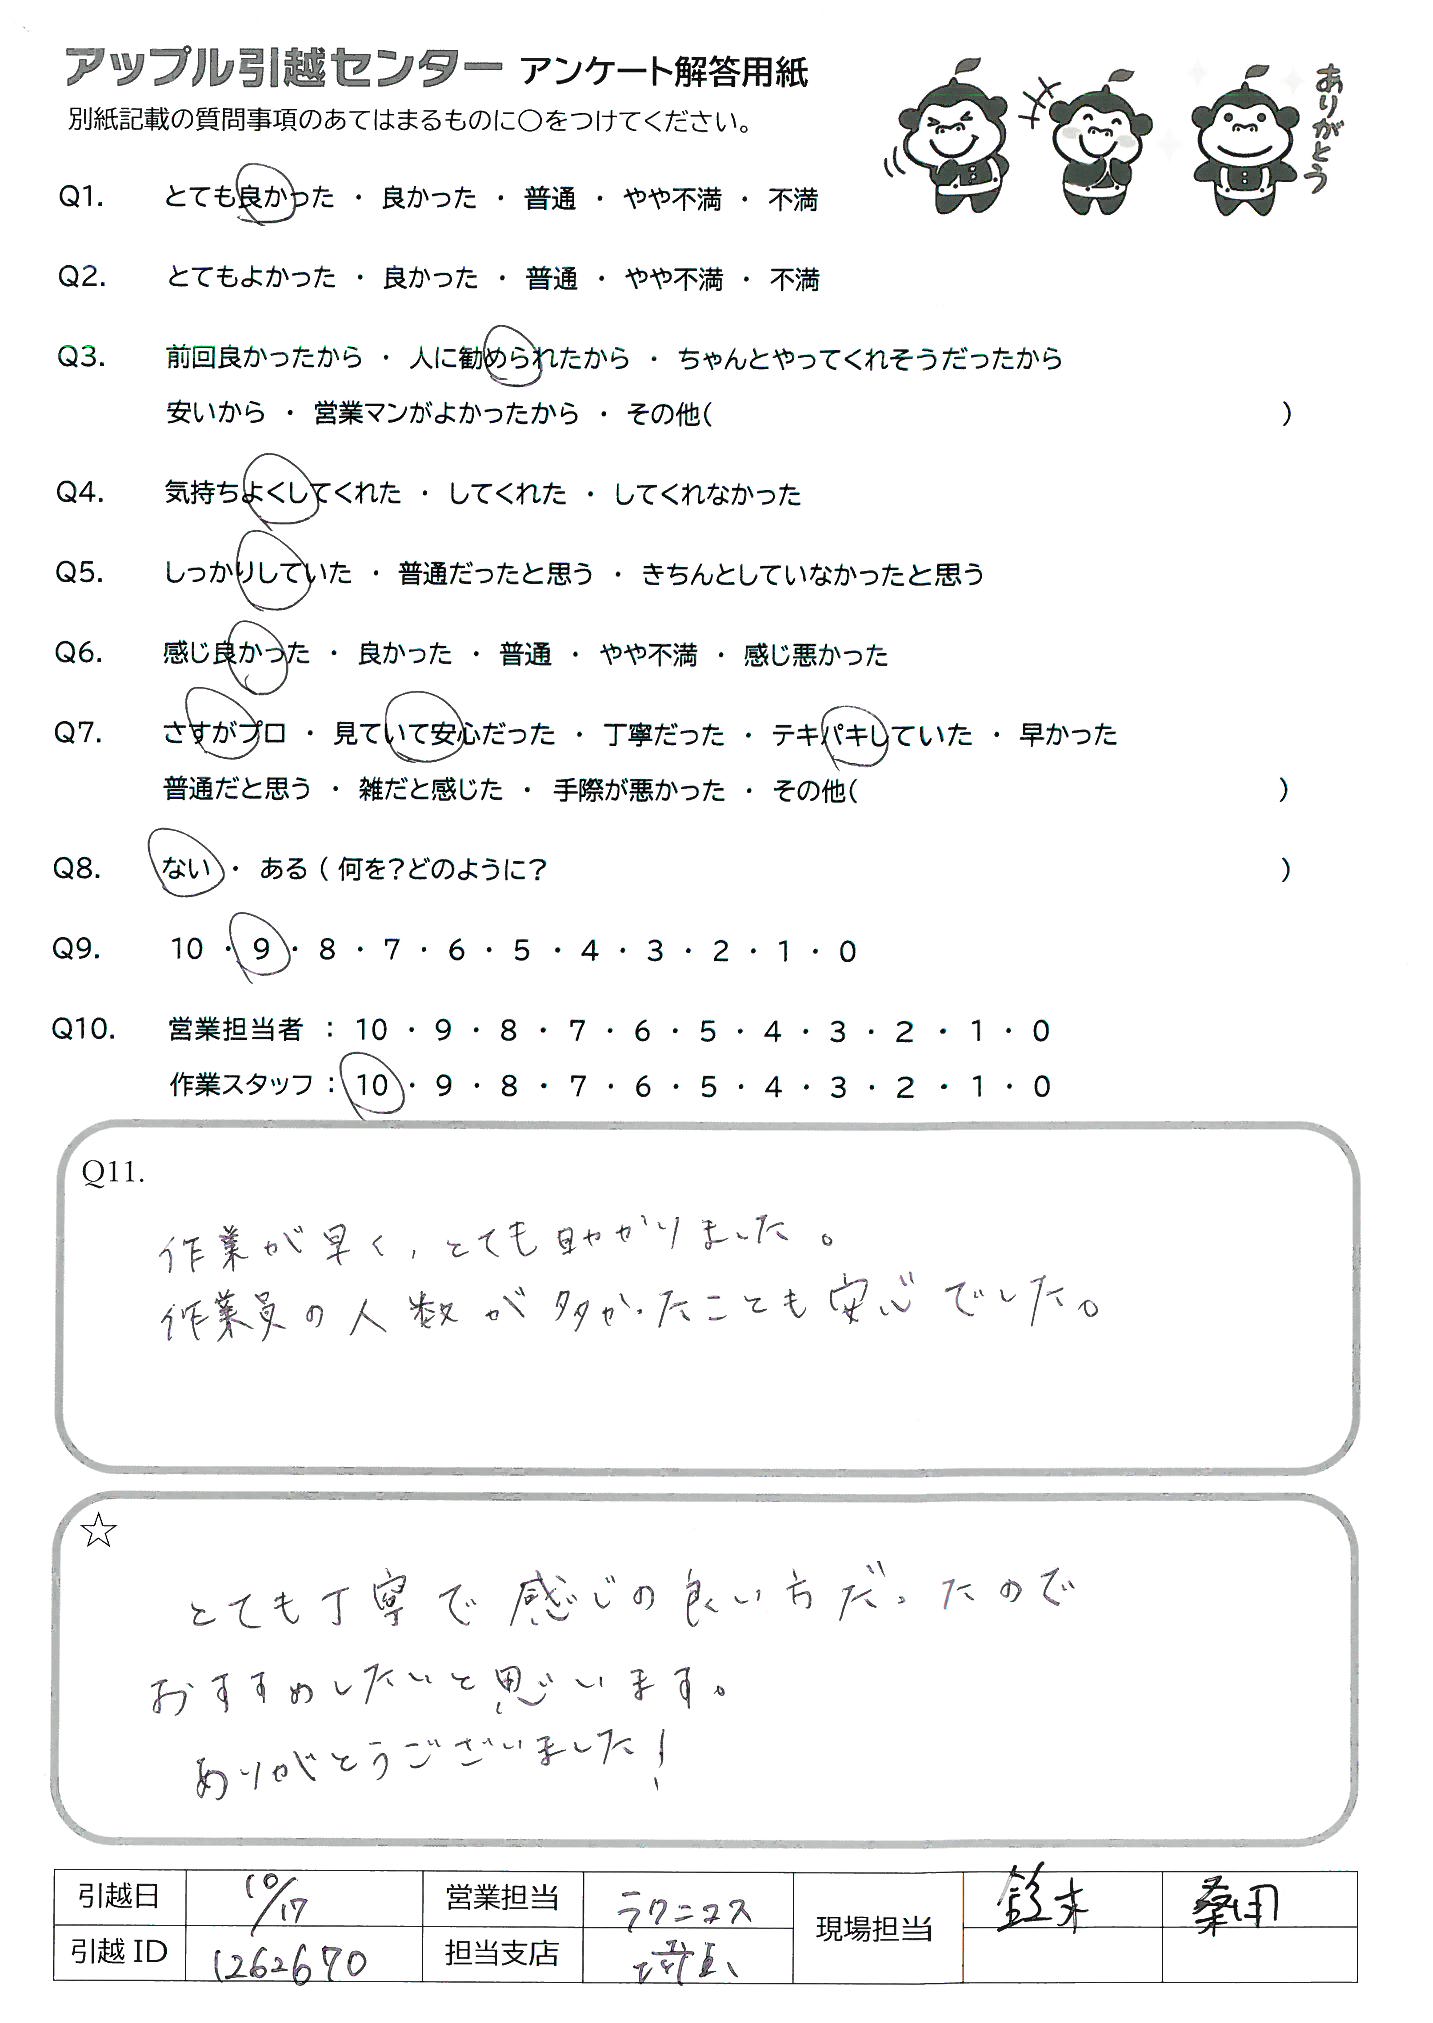 アップル引越センター アンケート解答用紙
別紙記載の質問事項のあてはまるものに○をつけてください。
ありがとう
Q1. とても良かった ・ 良かった ・ 普通 ・ やや不満 ・ 不満
Q2. とてもよかった ・ 良かった ・ 普通 ・ やや不満 ・ 不満
Q3. 前回良かったから ・ 人に勧められたから ・ ちゃんとやってくれそうだったから
安いから ・ 営業マンがよかったから ・ その他( )
Q4. 気持ちよくしてくれた ・ してくれた ・ してくれなかった
Q5. しっかりしていた ・ 普通だったと思う ・ きちんとしていなかったと思う
Q6. 感じ良かった ・ 良かった ・ 普通 ・ やや不満 ・ 感じ悪かった
Q7. さすがプロ ・ 見ていて安心だった ・ 丁寧だった ・ テキパキしていた ・ 早かった
普通だと思う ・ 雑だと感じた ・ 手際が悪かった ・ その他( )
Q8. ない ・ ある ( 何を?どのように? )
Q9. 10 ・ 9 ・ 8 ・ 7 ・ 6 ・ 5 ・ 4 ・ 3 ・ 2 ・ 1 ・ 0
Q10. 営業担当者 : 10 ・ 9 ・ 8 ・ 7 ・ 6 ・ 5 ・ 4 ・ 3 ・ 2 ・ 1 ・ 0
作業スタッフ : 10 ・ 9 ・ 8 ・ 7 ・ 6 ・ 5 ・ 4 ・ 3 ・ 2 ・ 1 ・ 0
Q11.
作業が早く、とても助かりました。
作業員の人数が多かったことも安心でした。
☆
とても丁寧で感じの良い方だったので
おすすめしたいと思います。
ありがとうございました!
引越日 10/17 営業担当 ラクニコス 現場担当 鈴木 桑田
引越ID 1262670 担当支店 埼玉